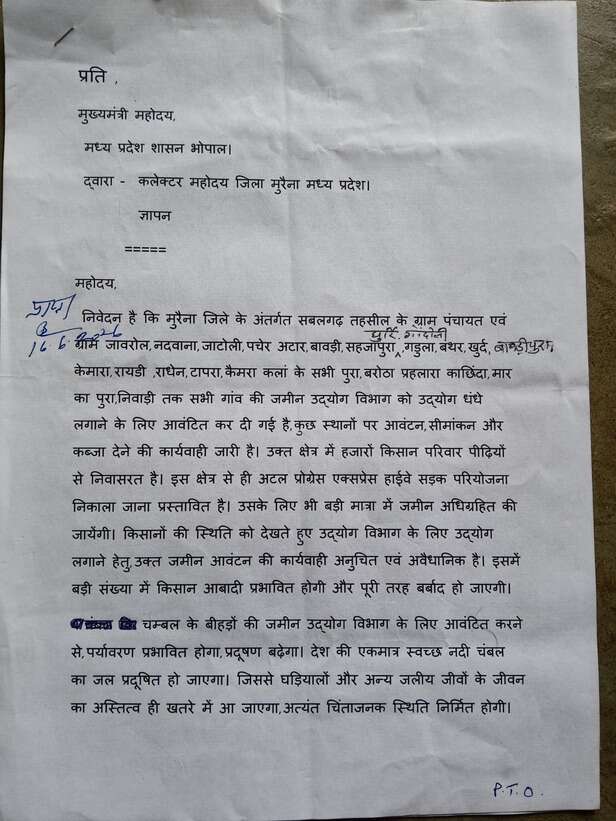 प्रति ,
मुख्यमंत्री महोदय,
मध्य प्रदेश शासन भोपाल।
द्वारा - कलेक्टर महोदय जिला मुरैना मध्य प्रदेश।
ज्ञापन
=====
महोदय,
निवेदन है कि मुरैना जिले के अंतर्गत सबलगढ़ तहसील के ग्राम पंचायत एवं
ग्राम जावरोल,नदवाना,जाटोली,पचेर अटार,बावड़ी,सहजापुरा,गडुला,बथर,खुर्द, बावड़ीपुरा,
केमारा,रायडी ,राधेन,टापरा,कैमरा कलां के सभी पुरा,बरोठा प्रहलारा काछिंदा,मार
का पुरा,निवाड़ी तक सभी गांव की जमीन उद्योग विभाग को उद्योग धंधे
लगाने के लिए आवंटित कर दी गई है,कुछ स्थानों पर आवंटन,सीमांकन और
कब्जा देने की कार्यवाही जारी है। उक्त क्षेत्र में हजारों किसान परिवार पीढ़ियों
से निवासरत है। इस क्षेत्र से ही अटल प्रोग्रेस एक्सप्रेस हाईवे सड़क परियोजना
निकाला जाना प्रस्तावित है। उसके लिए भी बड़ी मात्रा में जमीन अधिग्रहित की
जायेंगी। किसानों की स्थिति को देखते हुए उद्योग विभाग के लिए उद्योग
लगाने हेतु,उक्त जमीन आवंटन की कार्यवाही अनुचित एवं अवैधानिक है। इसमें
बड़ी संख्या में किसान आबादी प्रभावित होगी और पूरी तरह बर्बाद हो जाएगी।
चम्बल के बीहड़ों की जमीन उद्योग विभाग के लिए आवंटित करने
से,पर्यावरण प्रभावित होगा,प्रदूषण बढ़ेगा। देश की एकमात्र स्वच्छ नदी चंबल
का जल प्रदूषित हो जाएगा। जिससे घड़ियालों और अन्य जलीय जीवों के जीवन
का अस्तित्व ही खतरे में आ जाएगा,अत्यंत चिंताजनक स्थिति निर्मित होगी।
P.T.O.